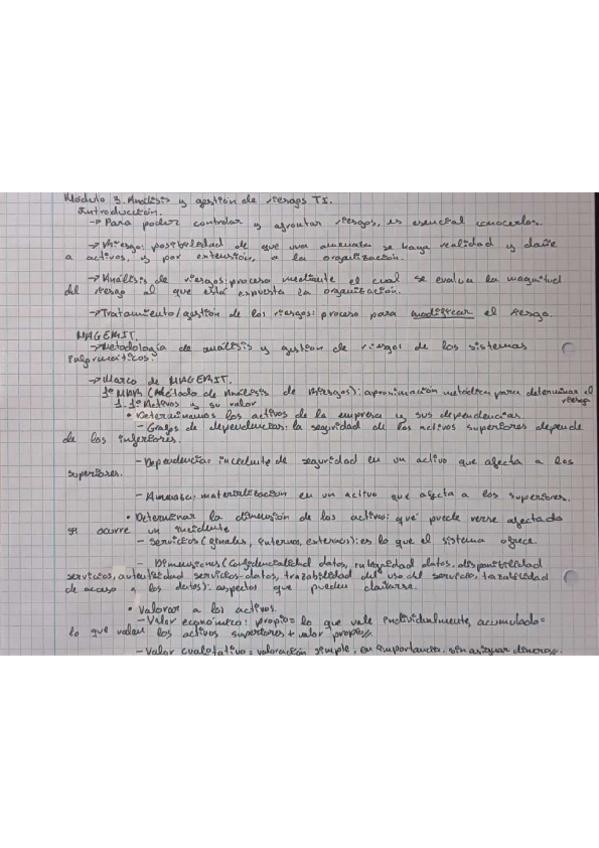 Módulo 3. Análisis y gestión de riesgos TI.
Introducción.
→ Para poder controlar y afrontar riesgos, es esencial conocerlos.
→ Riesgo: posibilidad de que una amenaza se haga realidad y dañe
a activos, y por extensión, a la organización.
→ Análisis de riesgos: proceso mediante el cual se evalua la magnitud
del riesgo al que está expuesta la organización.
→ Tratamiento/gestión de los riesgos: proceso para modificar el riesgo.
MAGERIT.
→ Metodología de análisis y gestion de riesgos de los sistemas
informáticos.
→ Marco de MAGERIT.
1º MAR (Método de Análisis de Riesgos): aproximación metódica para determinar el
riesgo
1.1º Activos y su valor
• Determinamos los activos de la empresa y sus dependencias
- Grafos de dependencias: la seguridad de los activos superiores depende
de los inferiores.
- Dependencia: incidente de seguridad en un activo que afecta a los
superiores.
- Amenaza: materialización en un activo que afecta a los superiores.
• Determinar la dimensión de los activos: qué puede verse afectado
si ocurre un incidente
- Servicios (finales, internos, externos): es lo que el sistema ofrece
- Dimensiones (Confidencialidad datos, integridad datos, disponibilidad
servicios, autenticidad servicios-datos, trazabilidad del uso del servicio, trazabilidad
de acceso a los datos): aspectos que pueden dañarse.
• Valorar a los activos.
- Valor económico: propio = lo que vale individualmente, acumulado =
lo que valen los activos superiores + valor propio
- Valor cualitativo = valoración simple, en importancia, sin asignar dinero